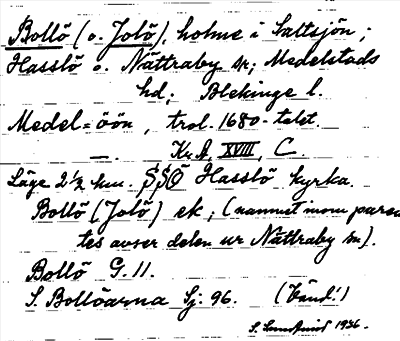 Bollö (o. Jolö), holme i Saltsjön;
Hasslö o. Nättraby snr; Medelstads
hd; Blekinge l.
Medel-öön, trol. 1680-talet.
—. Kr.A. XVIII, C.
Läge 2½ km. SSÖ Hasslö kyrka.
Bollö (Jolö) ek; (namnet inom paren-
tes avser delen ur Nättraby sn).
Bollö G. 11.
S. Bollöarna Sj. 96. (Vänd!)
S. 1936.